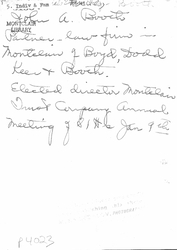 S. Indiv & Fam
John A. Booth
MONTCLAIR
LIBRARY
Partner - law firm in
Montclair of Boyd, Dodd
Keer & Booth.
Elected director Montclair
Trust Company Annual
Meeting of S/H's Jan 9th
P4023